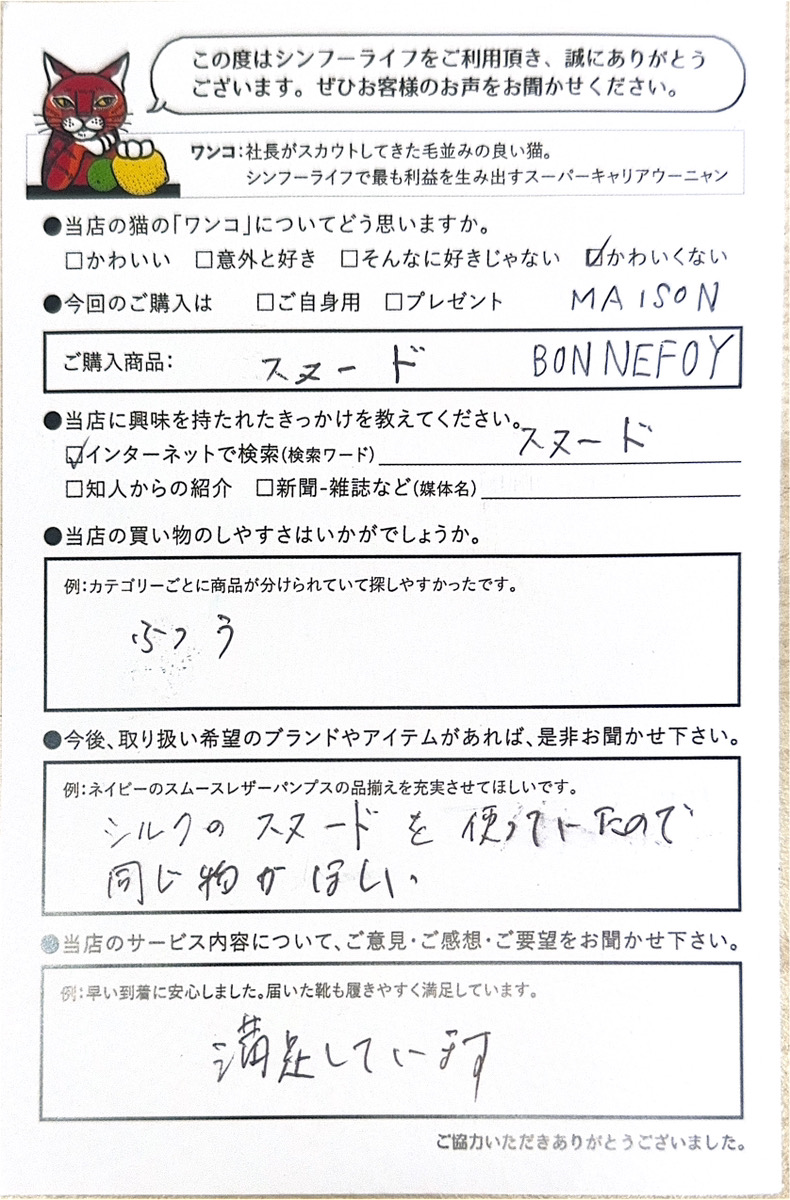 この度はシンフーライフをご利用頂き、誠にありがとう
ございます。ぜひお客様のお声をお聞かせください。
ワンコ:社長がスカウトしてきた毛並みの良い猫。
シンフーライフで最も利益を生み出すスーパーキャリアウーニャン
●当店の猫の「ワンコ」についてどう思いますか。
□かわいい □意外と好き □そんなに好きじゃない ☑かわいくない
●今回のご購入は □ご自身用 □プレゼント MAISON
ご購入商品: スヌード BONNEFOY
●当店に興味を持たれたきっかけを教えてください。
☑インターネットで検索(検索ワード) スヌード
□知人からの紹介 □新聞-雑誌など(媒体名)
●当店の買い物のしやすさはいかがでしょうか。
例:カテゴリーごとに商品が分けられていて探しやすかったです。
ふつう
●今後、取り扱い希望のブランドやアイテムがあれば、是非お聞かせ下さい。
例:ネイビーのスムースレザーパンプスの品揃えを充実させてほしいです。
シルクのスヌードを使っていたので
同じ物がほしい
●当店のサービス内容について、ご意見・ご感想・ご要望をお聞かせ下さい。
例:早い到着に安心しました。届いた靴も履きやすく満足しています。
満足しています
ご協力いただきありがとうございました。